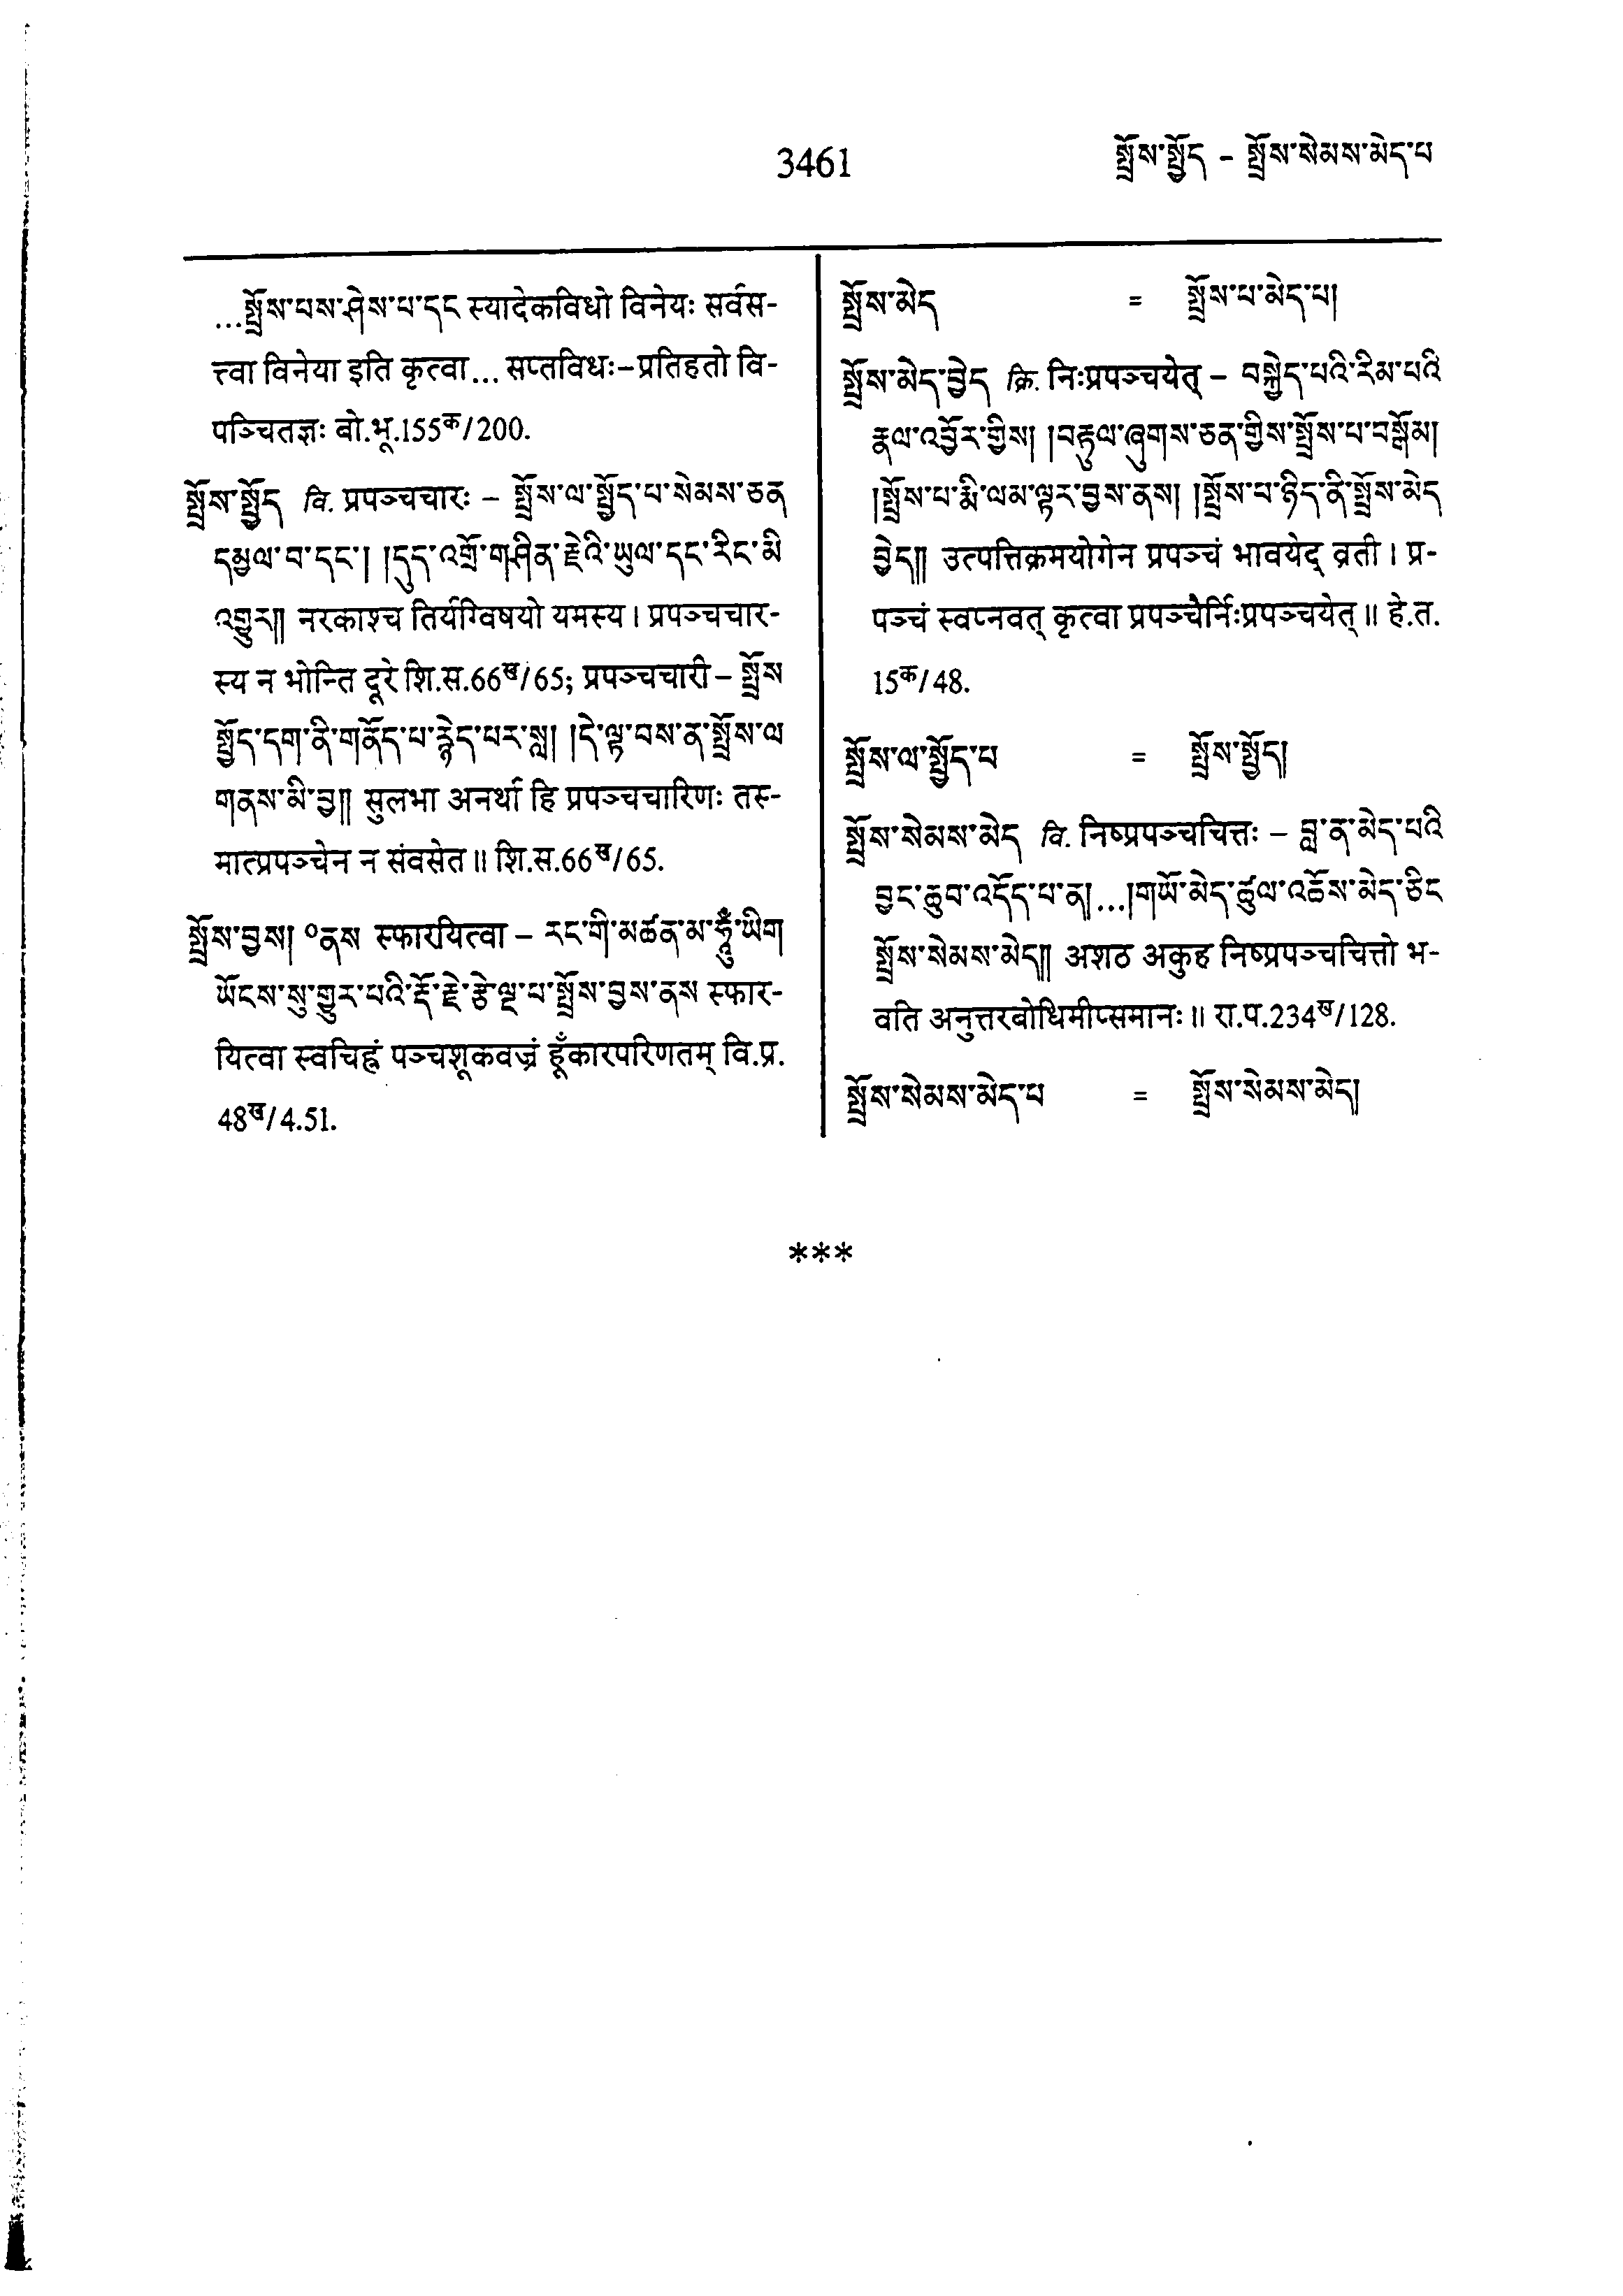 3461
སྤྲོས་སྤྱོད – སྤྲོས་སེམས་མེད་པ
...སྤྲོས་པས་ཤེས་པ་དང स्यादेकविधो विनेयः सर्वस-
त्त्वा विनेया इति कृत्वा... सप्तविधः–प्रतिहतो वि-
पञ्चितज्ञः बो.भू.155क/200.
སྤྲོས་སྤྱོད वि. प्रपञ्चचारः – སྤྲོས་ལ་སྤྱོད་པ་སེམས་ཅན
དམྱལ་བ་དང་། །དུད་འགྲོ་གཤིན་རྗེའི་ཡུལ་དང་རིང་མི
འགྱུར༎ नरकाश्च तिर्यग्विषयो यमस्य। प्रपञ्चचार-
स्य न भोन्ति दूरे शि.स.66ख/65; प्रपञ्चचारी – སྤྲོས
སྤྱོད་དག་ནི་གནོད་པ་རྙེད་པར་སླ། །དེ་ལྟ་བས་ན་སྤྲོས་ལ
གནས་མི་བྱ༎ सुलभा अनर्था हि प्रपञ्चचारिणः तस्-
मात्प्रपञ्चेन न संवसेत॥ शि.स.66ख/65.
སྤྲོས་བྱས། ༠ནས स्फारयित्वा – རང་གི་མཚན་མ་ཧཱུྃ་ཡིག
ཡོངས་སུ་གྱུར་པའི་རྡོ་རྗེ་རྩེ་ལྔ་པ་སྤྲོས་བྱས་ནས स्फार-
यित्वा स्वचिह्नं पञ्चशूकवज्रं हूँकारपरिणतम् वि.प्र.
48ख/4.51.
སྤྲོས་མེད = སྤྲོས་པ་མེད་པ།
སྤྲོས་མེད་བྱེད क्रि. निःप्रपञ्चयेत् – བསྐྱེད་པའི་རིམ་པའི
རྣལ་འབྱོར་གྱིས། །བརྟུལ་ཞུགས་ཅན་གྱིས་སྤྲོས་པ་བསྒོམ།
།སྤྲོས་པ་རྨི་ལམ་ལྟར་བྱས་ནས། །སྤྲོས་པ་ཉིད་ནི་སྤྲོས་མེད
བྱེད༎ उत्पत्तिक्रमयोगेन प्रपञ्चं भावयेद् व्रती। प्र-
पञ्चं स्वप्नवत् कृत्वा प्रपञ्चैर्निःप्रपञ्चयेत्॥ हे.त.
15क/48.
སྤྲོས་ལ་སྤྱོད་པ = སྤྲོས་སྤྱོད།
སྤྲོས་སེམས་མེད वि. निष्प्रपञ्चचित्तः – བླ་ན་མེད་པའི
བྱང་ཆུབ་འདོད་པ་ན།...།གཡོ་མེད་ཚུལ་འཆོས་མེད་ཅིང
སྤྲོས་སེམས་མེད༎ अशठ अकुह निष्प्रपञ्चचित्तो भ-
वति अनुत्तरबोधिमीप्समानः॥ रा.प.234ख/128.
སྤྲོས་སེམས་མེད་པ = སྤྲོས་སེམས་མེད།
***